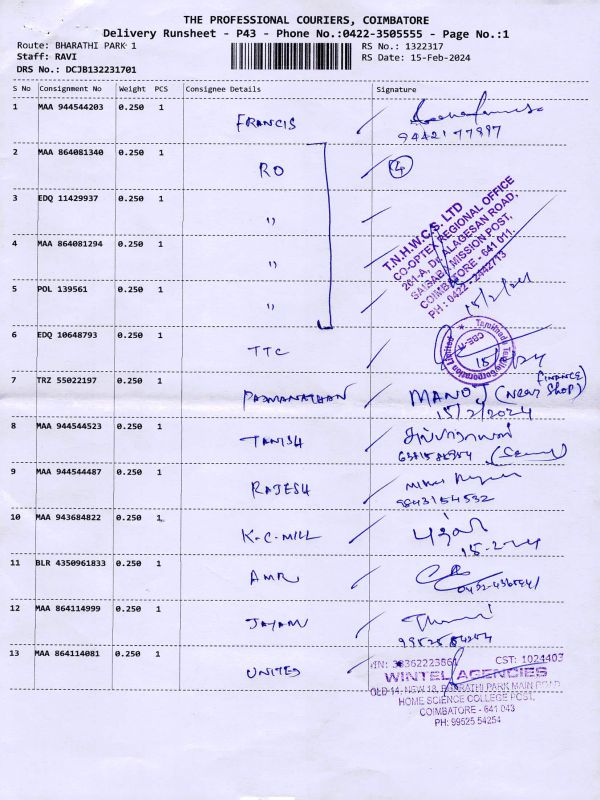 THE PROFESSIONAL COURIERS, COIMBATORE
Delivery Runsheet - P43 - Phone No.:0422-3505555 - Page No.:1
Route: BHARATHI PARK 1
RS No.: 1322317
Staff: RAVI
RS Date: 15-Feb-2024
DRS No.: DCJB132231701
S No Consignment No Weight PCS Consignee Details Signature
1 MAA 944544203 0.250 1 FRANCIS
9442177897
2 MAA 864081340 0.250 1 RO 4
3 EDQ 11429937 0.250 1 "
4 MAA 864081294 0.250 1 "
5 POL 139561 0.250 1 "
T.N.H.W.C.S. LTD
CO-OPTEX REGIONAL OFFICE
261-A, Dr. ALAGESAN ROAD,
SAIBABA MISSION POST,
COIMBATORE - 641 011.
PH : 0422 - 2442713
15/2/24
6 EDQ 10648793 0.250 1 TTC
Tamilnadu Textile Corporation Limited
CBE-11
7 TRZ 55022197 0.250 1 PADMANATHAN MANOJ (Near Shop)
FINANCE
15/2/2024
8 MAA 944544523 0.250 1 TANISH
9 MAA 944544487 0.250 1 RAJESH
9843154532
10 MAA 943684822 0.250 1 K-C-MILL
15-2-24
11 BLR 4350961833 0.250 1 AMR
12 MAA 864114999 0.250 1 JAYAM
13 MAA 864114081 0.250 1 UNITED
CST: 1024403
WINTEL AGENCIES
OLD 14, NEW 18, BHARATHI PARK MAIN ROAD
HOME SCIENCE COLLEGE POST,
COIMBATORE - 641 043
PH: 99525 54254